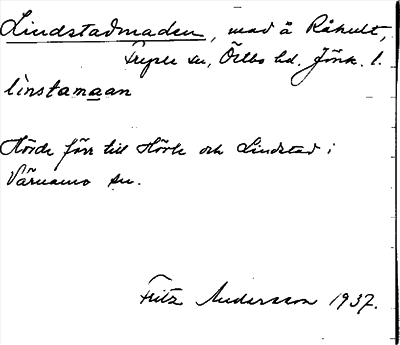 Lindstadmaden, mad å Råhult,
Tryple sn, Östbo hd. Jönk. l.
li`nstamaan
Hörde förr till Hörle och Lindstad i
Värnamo sn.
Fritz Andersson 1937.